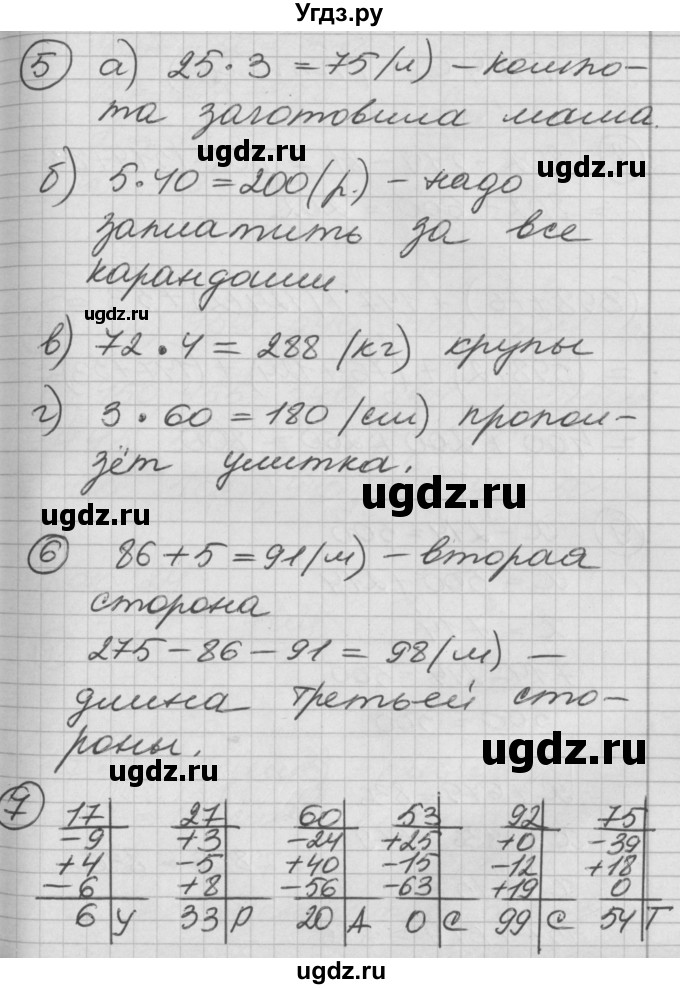 Угдз.ру
5 а) 25·3 = 75 (л) – компо-
та заготовила мама.
ugdz.ru
ugdz.ru
б) 5·40 = 200 (р.) – надо
заплатить за все
карандаши.
ugdz.ru
в) 72·4 = 288 (кг) крупы
г) 3·60 = 180 (см) пропол-
зёт улитка.
ugdz.ru
ugdz.ru
6 86+5 = 91 (м) – вторая
сторона
275 – 86 – 91 = 98 (м) –
длина третьей сто-
роны.
ugdz.ru
ugdz.ru
7 17 27 60 53 92 75
–9 +3 –24 +25 +0 –39
+4 –5 +40 –15 –12 +18
–6 +8 –56 –63 +19 0
6 У 33 Р 20 А 0 С 99 С 54 Т
ugdz.ru